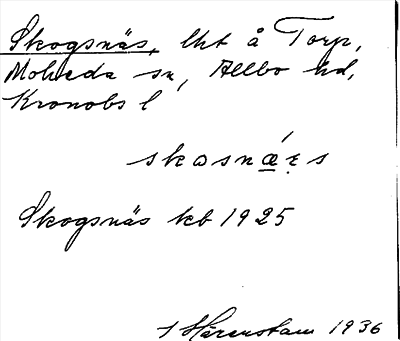 Skogsnäs, lht å Torp,
Moheda sn, Allbo hd,
Kronobs l
skɷsnǽ̠ṛs
Skogsnäs kb 1925
1936